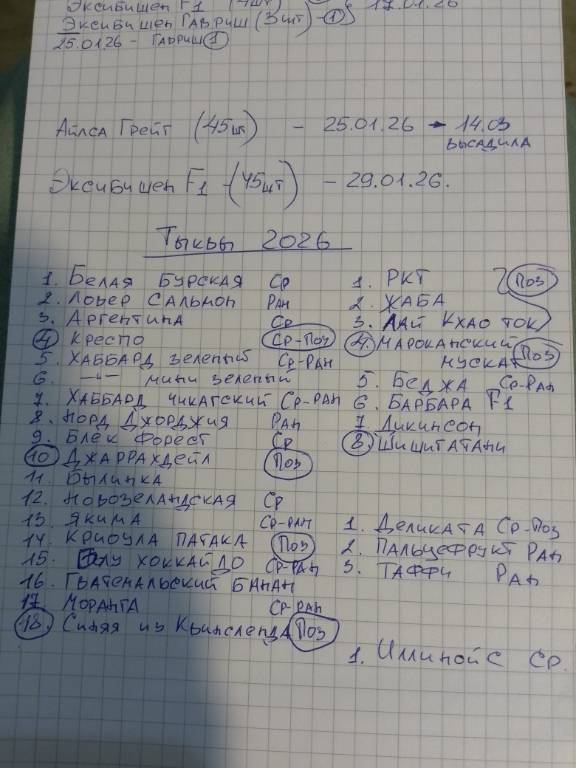 Эксибишен F1 (4шт) 17.01.26
Эксибишен Гавриш (3шт) - 1
25.01.26 - Гавриш 1
Айлса Грейг (45шт) - 25.01.26 → 14.03
высадила
Эксибишен F1 - (45шт) - 29.01.26.
Тыквы 2026
1. Белая Бурская Ср
2. Ловер Сальмон Ран
3. Аргентина Ср
4 Креспо Ср-Поз
5. Хаббард зеленый Ср-Ран
6. -"- мини зеленый
7. Хаббард Чикагский Ср-Ран
8. Норд Джорджия Ран
9. Блек Форест Ср
10. Джаррахдейл Поз
11. Былинка
12. Новозеландская Ср
13. Якима Ср-Ран
14. Криоула Патака Поз
15. Блу Хоккайдо Ср-Ран
16. Гватемальский Банан
17 Моранга Ср-Ран
18. Синяя из Квинсленда Поз
1. РКТ Поз
2. Жаба
3. Лай Кхао ток
4. Мароканский
мускат Поз
5. Беджа Ср-Ран
6. Барбара F1
7. Дикинсон
8. Шишитатани
1. Деликата Ср-Поз
2. Пальцефрукт Ран
3. Таффи Ран
1. Иллинойс Ср.